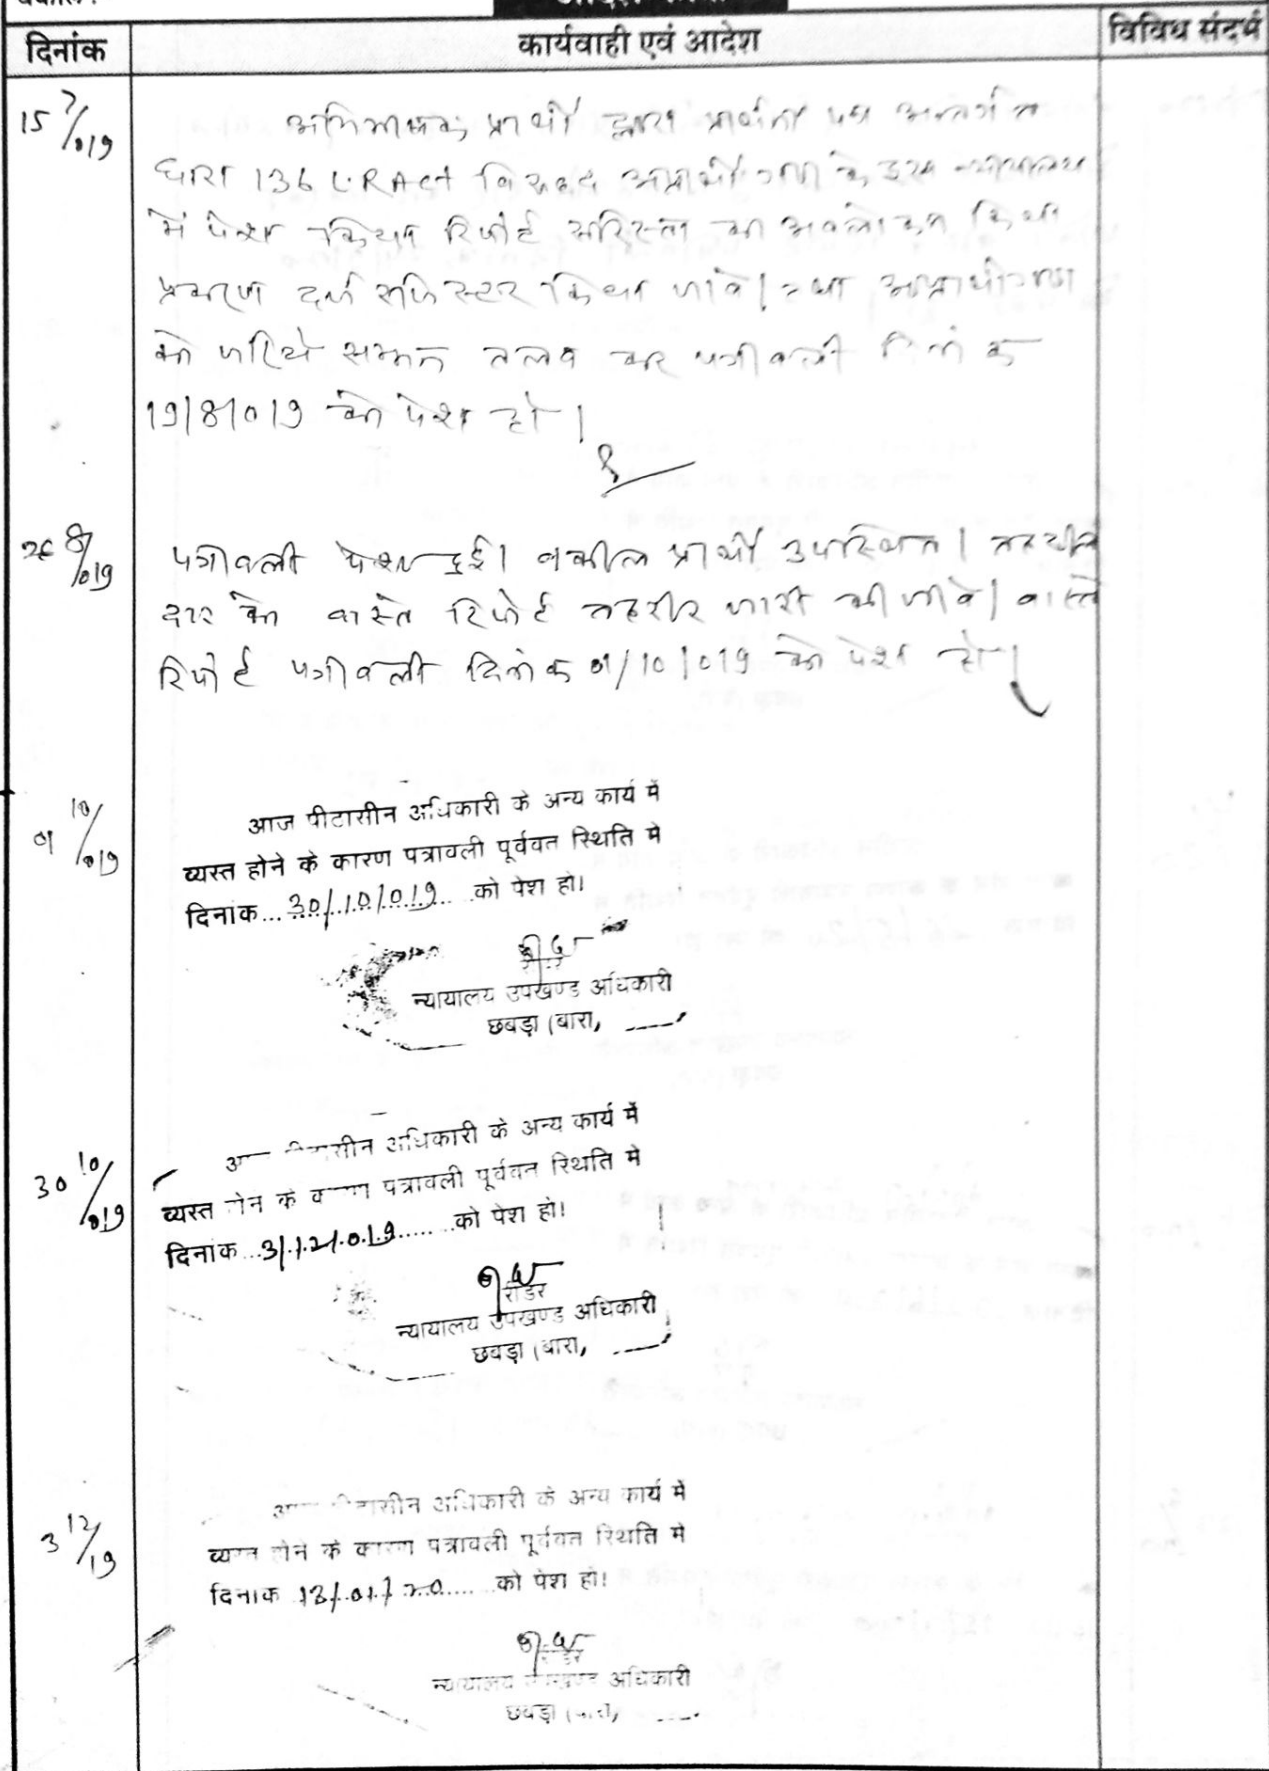 दिनांक
कार्यवाही एवं आदेश
विविध संदर्भ
15 7/019
अभिभाषक प्रार्थी द्वारा प्रार्थना पत्र अन्तर्गत
धारा 136 L.R Act विरूद्ध अप्रार्थीगण के इस न्यायालय
में पेश किया रिपोर्ट सरिस्ता का अवलोकन किया
प्रकरण दर्ज रजिस्टर किया जावे। तथा अप्रार्थीगण
को जरिये सम्मन तलब कर पत्रावली दिनांक
19/8/019 को पेश हो।
26 8/019
पत्रावली पेश हुई। वकील प्रार्थी उपस्थित। तहसील
दार को वास्ते रिपोर्ट तहरीर जारी की जावे। वास्ते
रिपोर्ट पत्रावली दिनांक 01/10/019 को पेश हो।
01 10/019
आज पीटासीन अधिकारी के अन्य कार्य में
व्यस्त होने के कारण पत्रावली पूर्ववत स्थिति मे
दिनांक... 30/10/019 ... को पेश हो।
न्यायालय उपखण्ड अधिकारी
छबड़ा (बारा,
30 10/019
अधिकारी के अन्य कार्य में
व्यस्त के पत्रावली पूर्ववत स्थिति मे
दिनांक ...3/12/019...... को पेश हो।
रीडर
न्यायालय उपखण्ड अधिकारी
छबड़ा (बारा,
3 12/19
अधिकारी के अन्य कार्य में
होने के कारण पत्रावली पूर्ववत स्थिति मे
दिनांक 13/01/20...... को पेश हो।
न्यायालय अधिकारी
छबड़ा